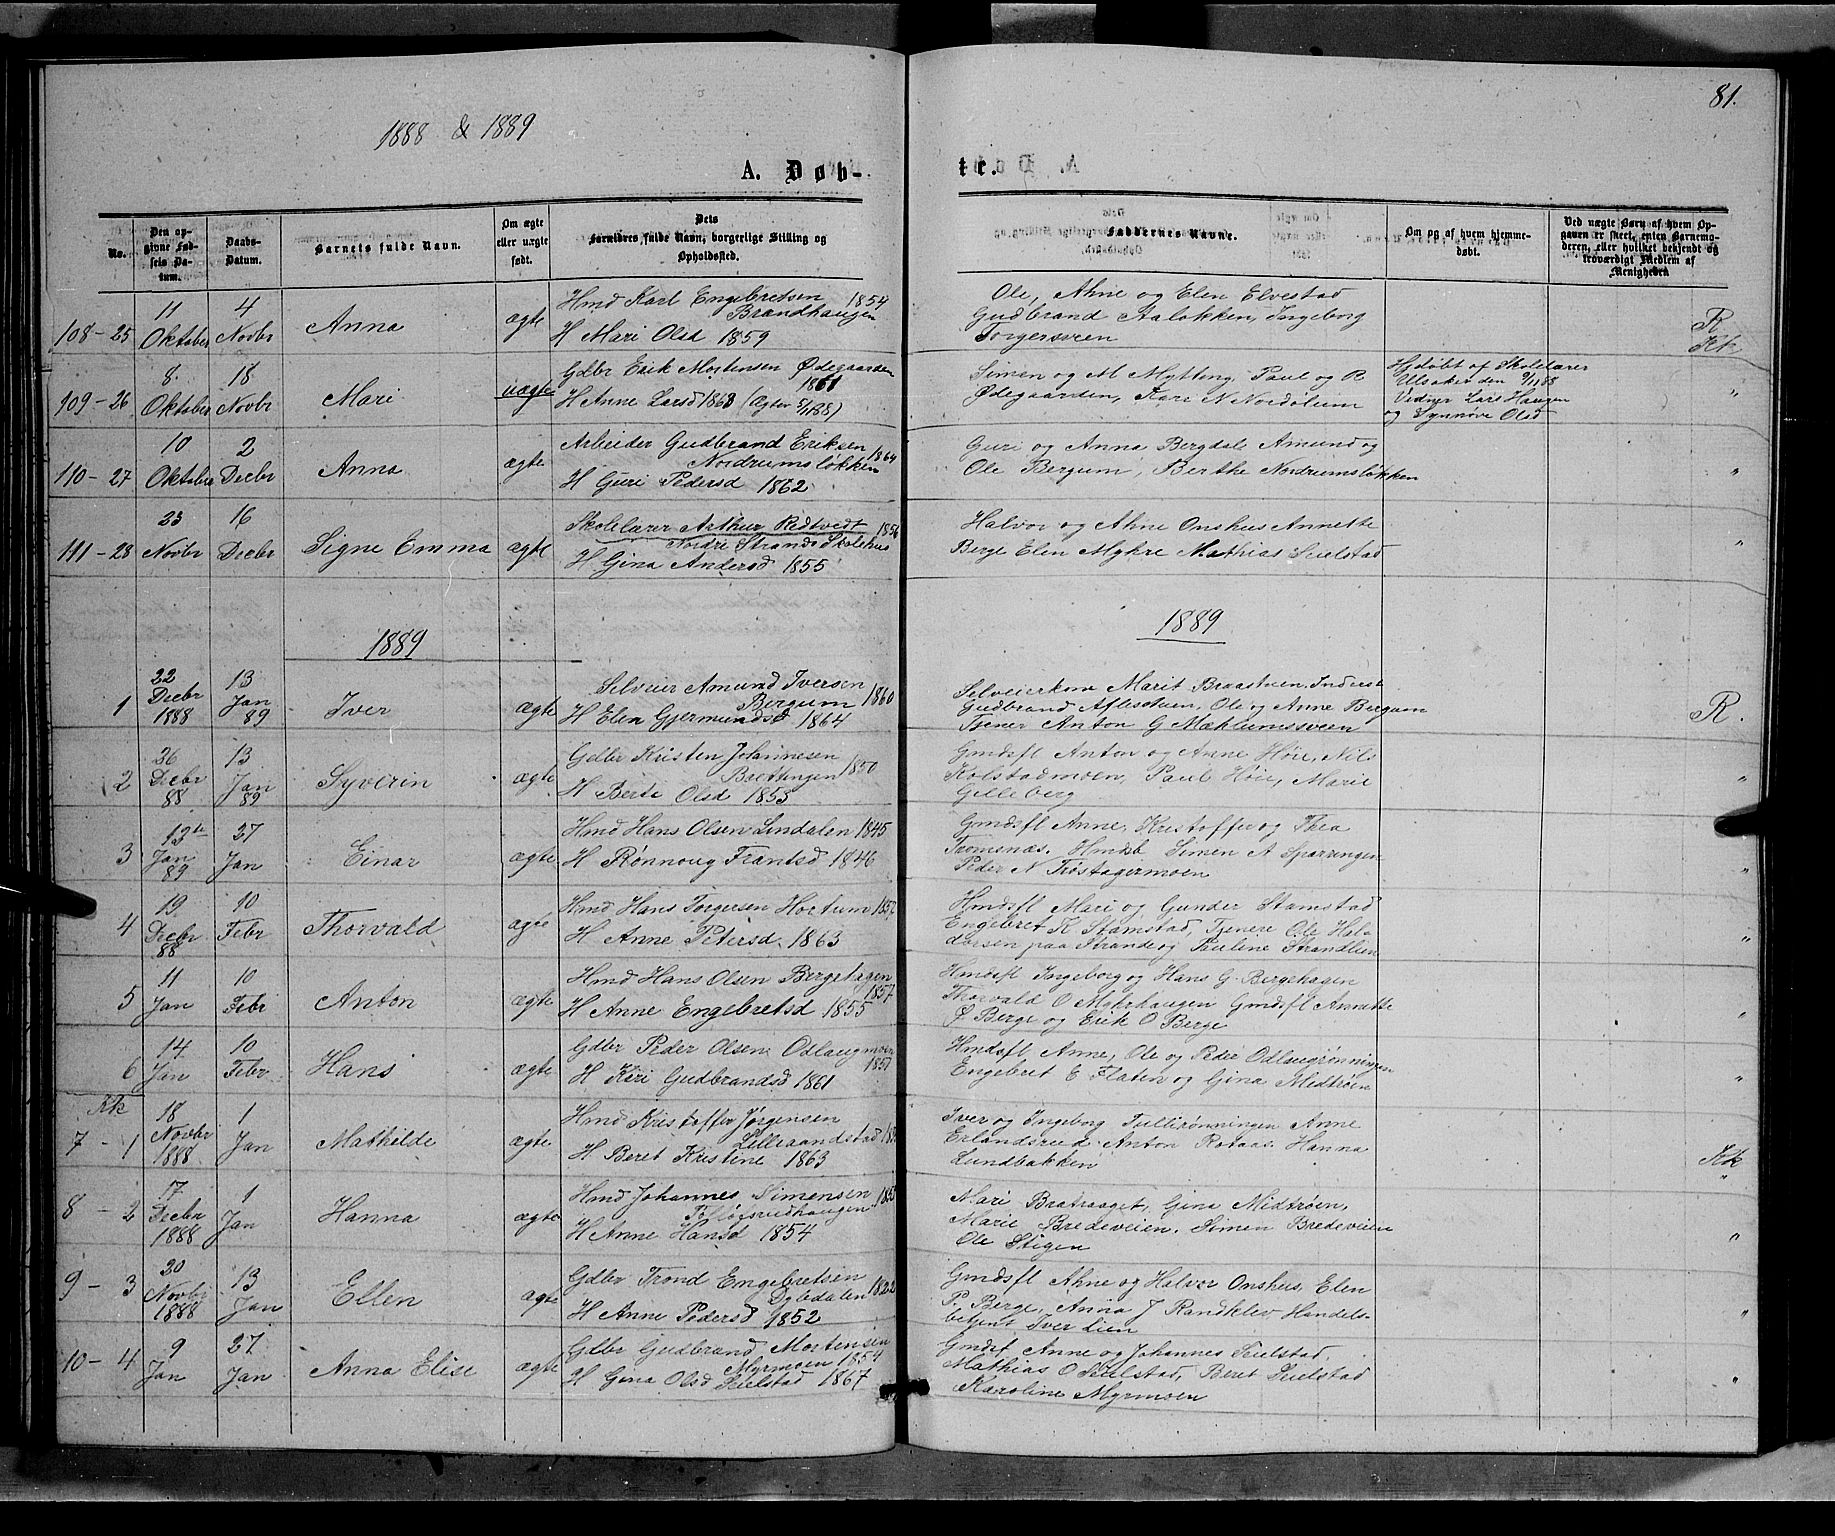 81.
1888 & 1889
A. Døb-
te.
No.
Den op-
givne Fød-
sels Da-
tum.
Daabs-
Datum.
Barnets fulde Navn.
Om ægte
eller uægte
født.
Dets
Forældres fulde Navn, borgerlige Stilling og
Opholdssted.
Faddernes Navne.
Om og af hvem hjemme-
døbt.
Ved uægte Børn af hvem Op-
gaven er skeet, enten Barnemo-
deren, eller hvilket bekjendt og
troværdigt Medlem af
Menigheden
108-25
11
Oktober
4
Novbr
Anna
ægte
Hmd Karl Engebretsen 1854
Brandhaugen
H Mari Olsd 1859
Ole, Ahne og Elen Elvestad
Gudbrand Aaløkken, Ingeborg
Torgersveen
R
Kk
109-26
8.
Oktober
18
Novbr
Mari
uægte
Gdbr Erik Mortensen Ødegaarden
1861
H Anne Larsd 1863
Simen og M Mytting, Paul og R
Ødegaarden, Kari N Nordstum
Hjdøbt af Skolelærer
Ulsaker den 9/11 88
Vidner Lars Haugen
og Synnøve Olsd
"
110-27
10
Oktober
2
Decbr
Anna
ægte
Arbeider Gudbrand Eriksen
Nordrumsløkken 1864
H Guri Pedersd 1862
Guri og Anna Bergdal Amund og
Ole Bergum, Berthe Nordrumsløkken
"
111-28
23
Novbr
16
Decbr
Signe Emma
ægte
Skolelærer Arthur Rødtvedt 1856
Nordre Strands Skolehus
H Gina Andersd 1855
Halvor og Ahne Onshus Annette
Berge Elen Mykre Mathias Seielstad
"
1889
1889
1
22
Decbr
1888
13
Jan
89
Iver
ægte
Selveier Amund Iversen
Bergum 1860
H Elen Gjermundsd 1864
Selveierkone Marit Braastuen, Inderst
Gudbrand Aflestuen, Ole og Anne Bergum
Tjener Anton G Mæhlumssveen
R.
2
26
Decbr
88
13
Jan
89
Syverin
ægte
Gdbr Kristen Johannesen
Brettingen 1850
H Berte Olsd 1853
Gmdsfl Anton og Anne Høie, Nils
Kolstadmoen, Paul Høie, Marie
Gilleberg
"
3
13de
Jan
89
27
Jan
Einar
ægte
Hmd Hans Olsen Lindalen 1845
H Rønnoug Frantsd 1846
Gmdsfl Anne, Kristoffer og Thea
Tromsnæs, Hmdsb. Simen A Sparringen
Peder N Trøstagermoen
"
4
19
Decbr
88
10
Febr
Thorvald
ægte
Hmd Hans Torgersen Hortum 1857
H Anne Petersd 1863
Hmdsfl Mari og Gunder Stamstad
Engebret K Stamstad, Tjenere Ole Hal-
dorsen paa Strande og Pauline Strandlien
"
5
11
Jan
10
Febr
Anton
ægte
Hmd Hans Olsen Bergehagen
1857
H Anne Engebretsd 1855
Hmdsfl Ingeborg og Hans G. Bergehagen
Thorvald O Myrhaugen Gmdsfl Annette
P Berge og Erik O Berge
"
6
14
Jan
10
Febr
Hans
ægte
Gdbr Peder Olsen Odlaugmoen
1857
H Kari Gudbrandsd 1861
Hmdsfl Anne, Ole og Peder Odlaugrønningen
Engebret E Flaten og Gina Midtrøen
"
Kk
7-1
18
Novbr
1888
1
Jan
Mathilde
ægte
Hmd Kristoffer Jørgensen
Lilleaandstad
H Beret Kristine 1863
Iver og Ingeborg Tullirønningen Anne
Erlandsrud Anton Rotaas Hanna
Lundbakken
Kk
"
8-2
17
Decbr
1888
1
Jan
Hanna
ægte
Hmd Johannes Simensen
H Anne Hansd 1854
Mari Bratraaget, Gina Midtrøen,
Marie Bredeveien, Simen Bredeveien
Ole Stigen
"
9-3
20
Novbr
1888
13
Jan
Ellen
ægte
Gdbr Trond Engebretsen 1822
Dybedalen
H Anne Pedersd 1852
Gmdsfl Ahne og Halvor Onshus, Elen
P. Berge, Anna J Randklev, Handels-
betjent Iver Lien
"
10-4
9
Jan
27
Jan
Anna Elise
ægte
Gdbr Gudbrand Mortensen
Myrmoen 1854
H Gina Olsd Seielstad 1867
Gmdsf. Anne og Johannes Seielstad,
Mathias O Seielstad, Beret Seielstad
Karoline Myrmoen
"